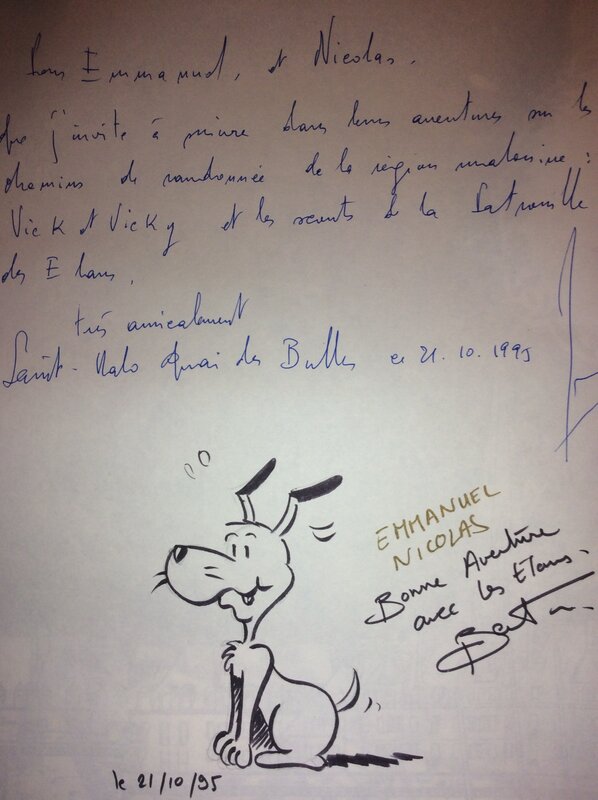 Pour Emmanuel, et Nicolas.
que j'invite à suivre dans leurs aventures sur les
chemins de randonnée de la région malouine :
Vick et Vicky et les scouts de la Patrouille
des Elans,
très amicalement
Saint-Malo Quai des Bulles ce 21.10.1995
EMMANUEL
NICOLAS
Bonne Aventure
avec les Elans.
le 21/10/95